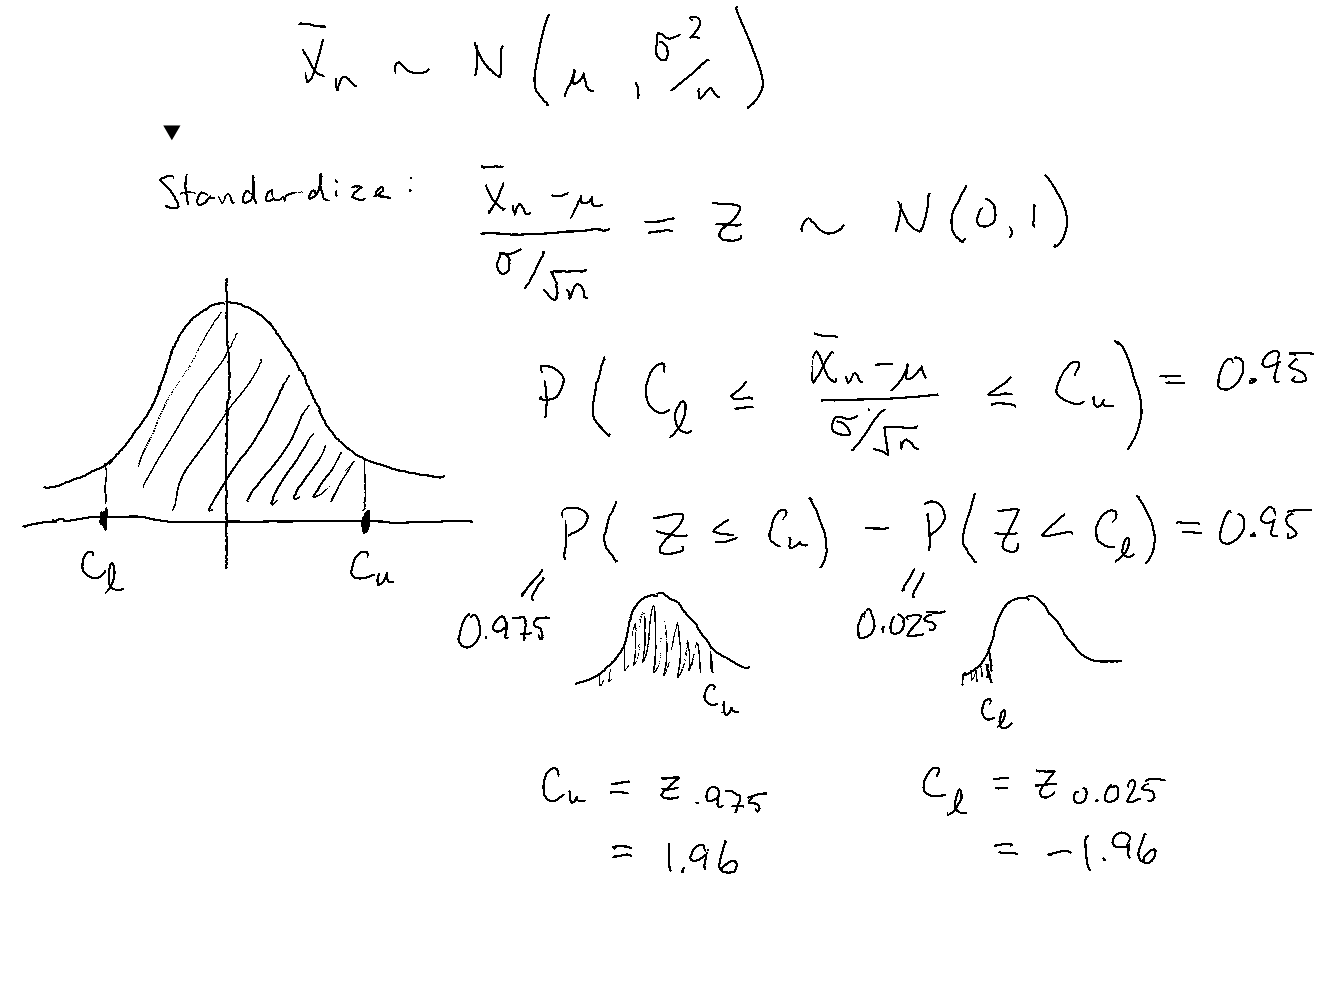 X̄ₙ ~ N(μ, σ²/n)
Standardize: (X̄ₙ-μ)/(σ/√n) = Z ~ N(0,1)
P(C_ℓ ≤ (X̄ₙ-μ)/(σ/√n) ≤ C_u) = 0.95
P(Z ≤ C_u) - P(Z < C_ℓ) = 0.95
= =
0.975 0.025
C_ℓ C_u
C_u C_ℓ
C_u = Z_.975 C_ℓ = Z_0.025
= 1.96 = -1.96